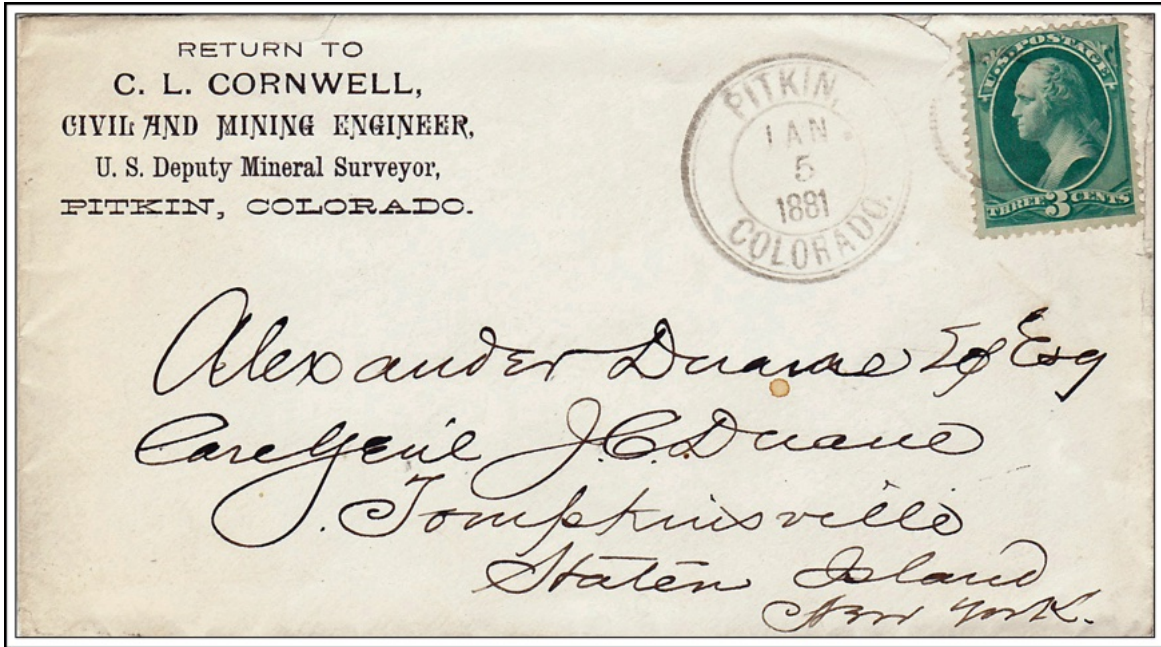 RETURN TO
C. L. CORNWELL,
CIVIL AND MINING ENGINEER,
U. S. Deputy Mineral Surveyor,
PITKIN, COLORADO.
PITKIN,
JAN
5
1881
COLORADO.
U.S. POSTAGE
THREE 3 CENTS
Alexander Duane Esq
Care Genl J. C. Duane
Tompkinsville
Staten Island
New York.